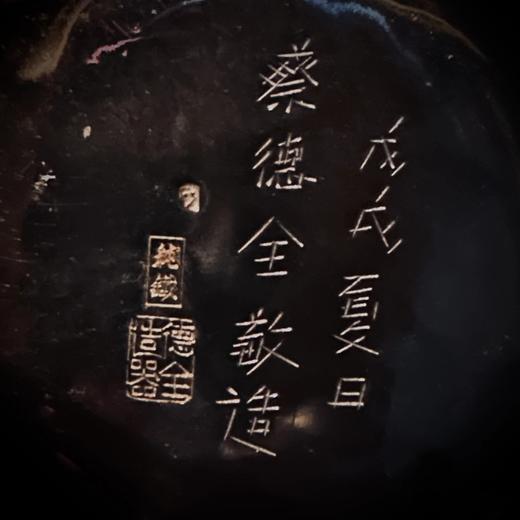 戊戌夏日
蔡德全敬造
純鐵
德全造器